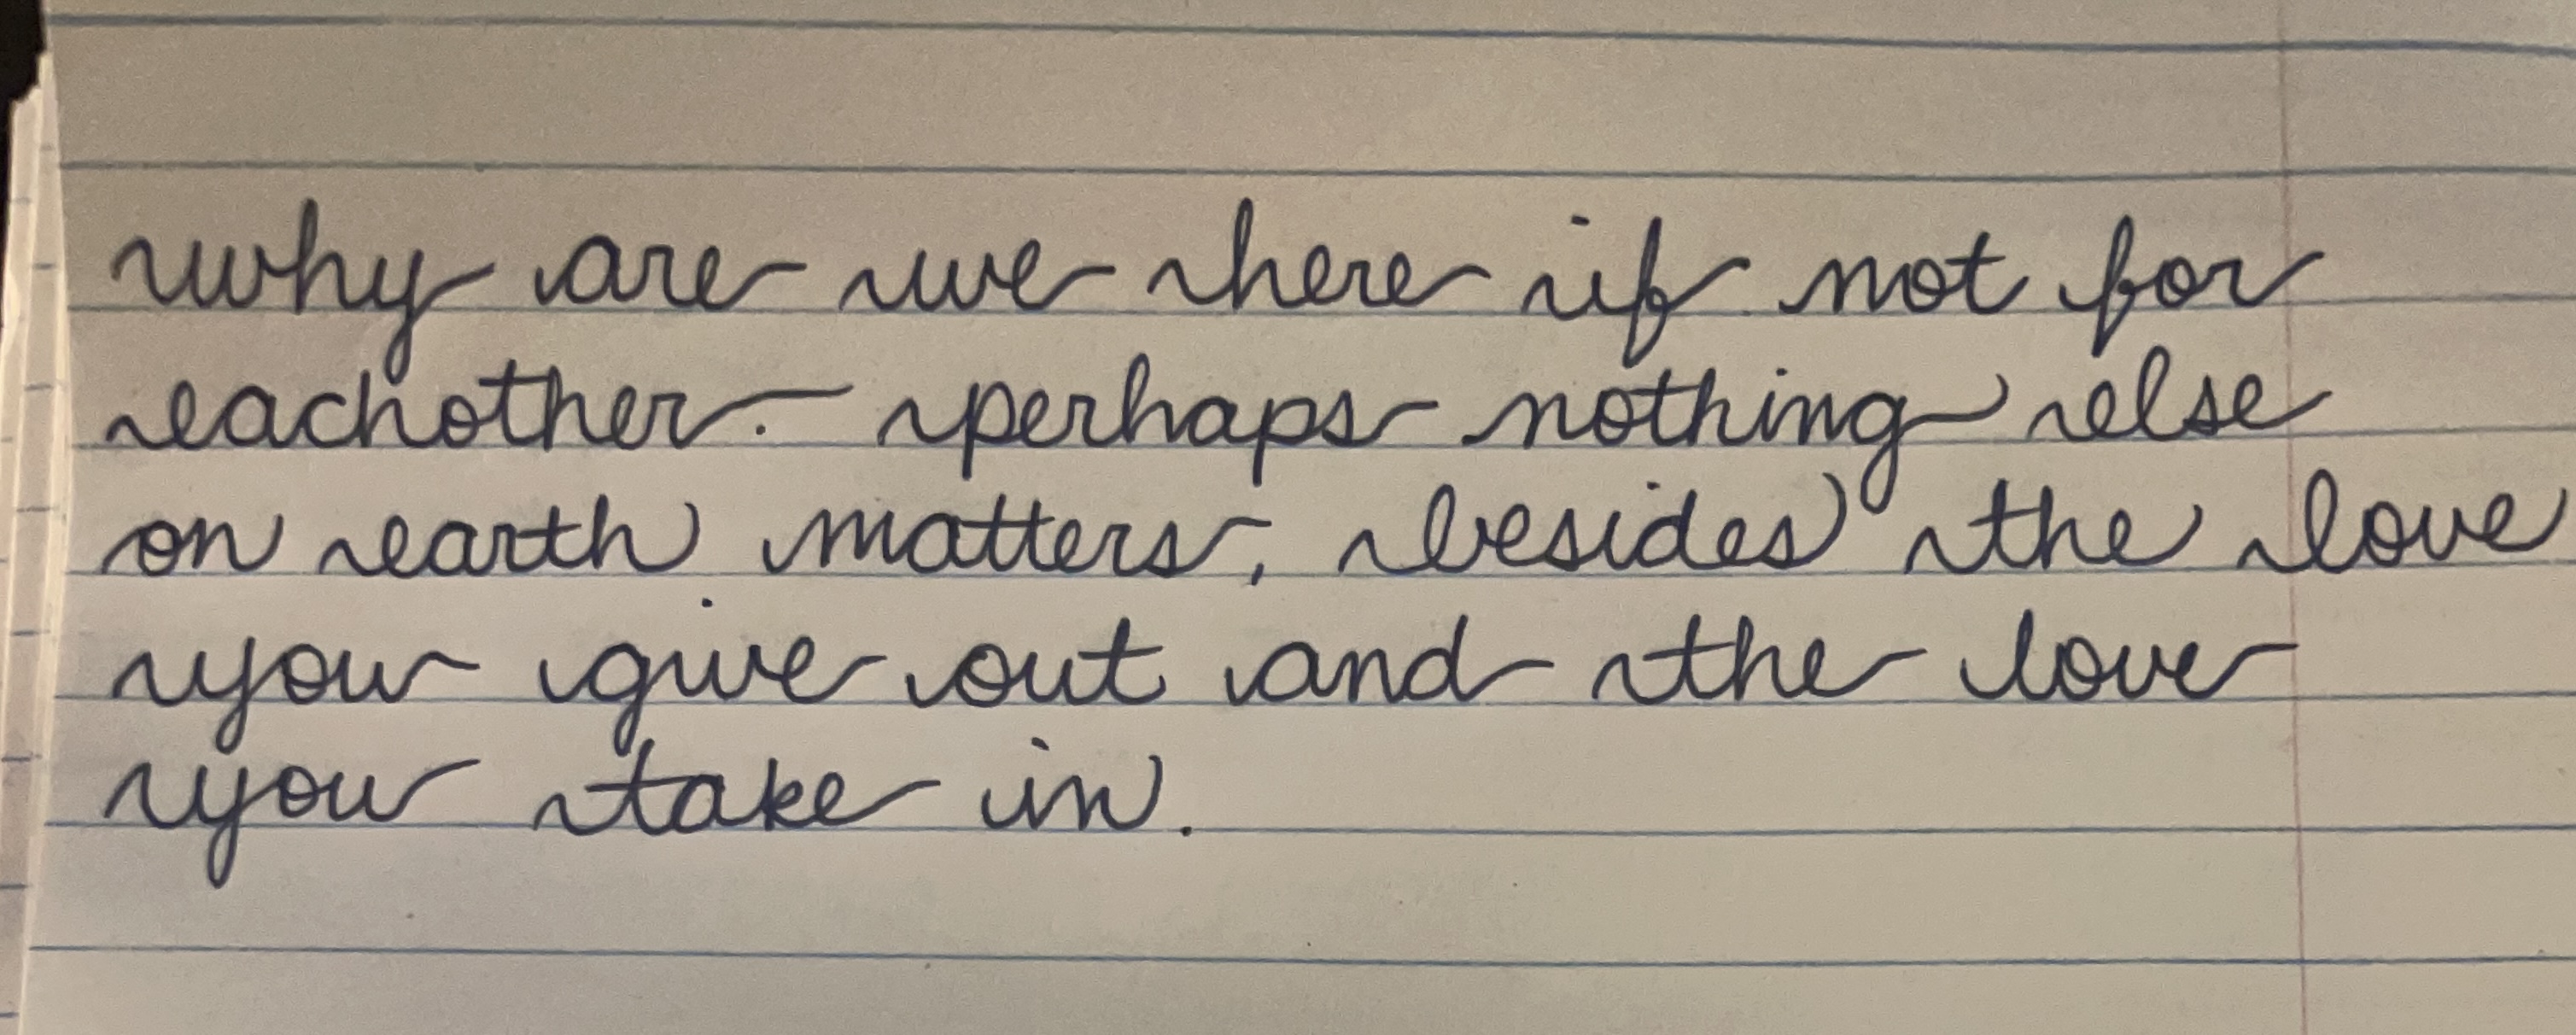 why are we here if not for
eachother. perhaps nothing else
on earth matters, besides the love
you give out and the love
you take in.